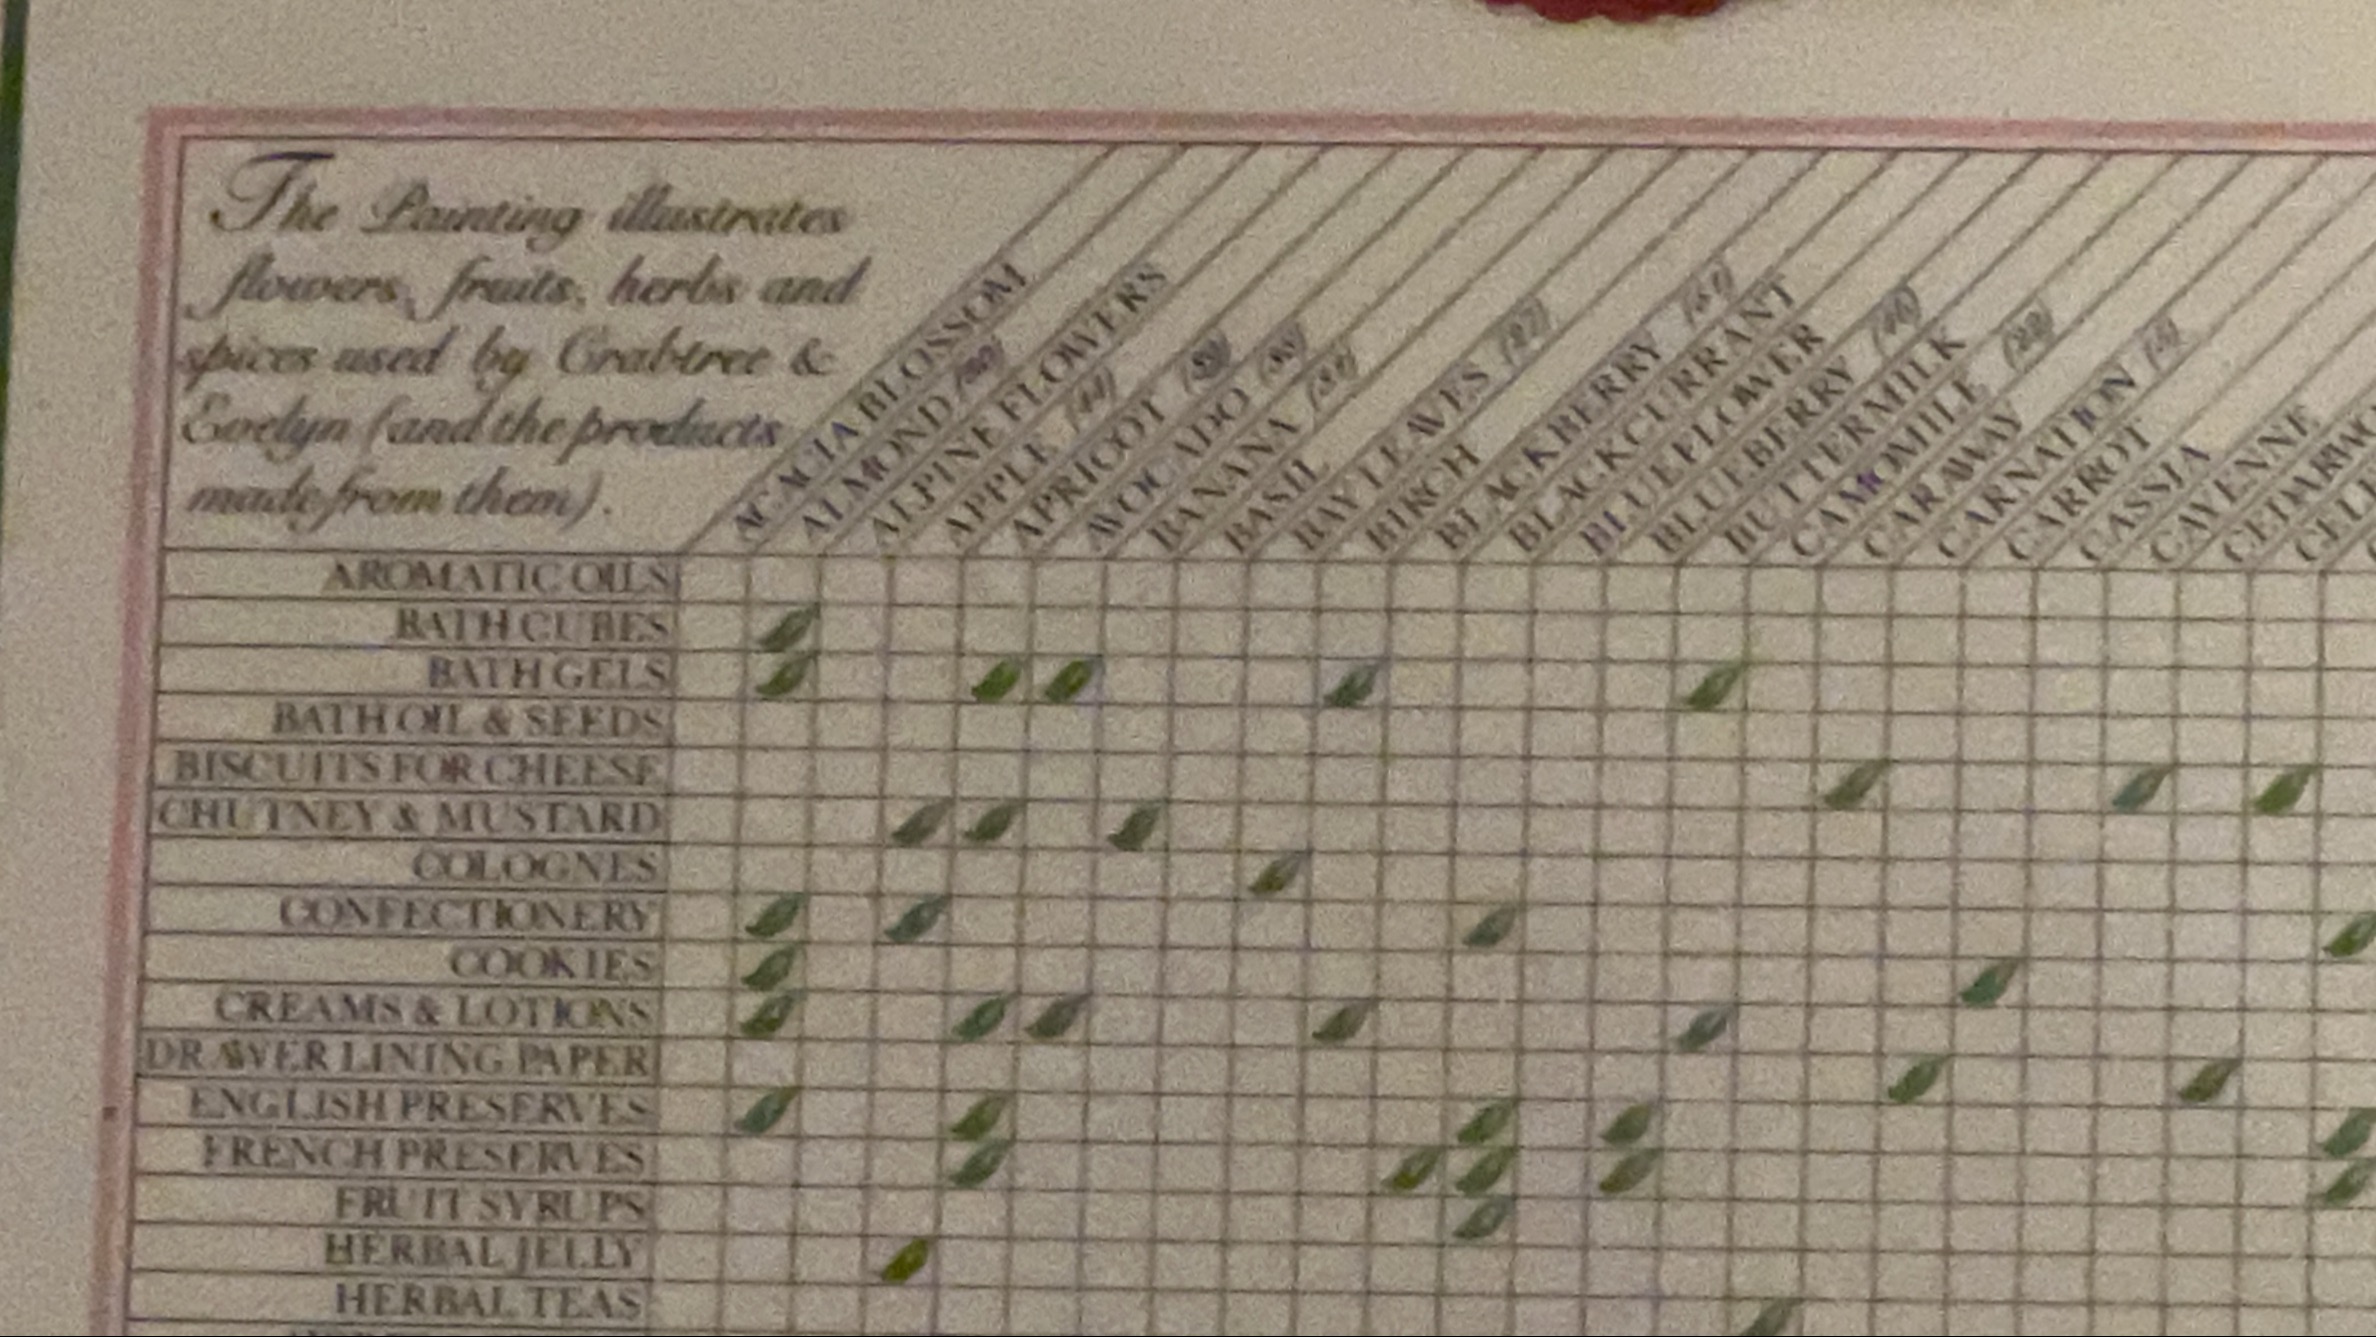 The Painting illustrates
flowers, fruits, herbs and
spices used by Crabtree &
Evelyn (and the products
made from them).
ACACIA BLOSSOM
ALMOND
ALPINE FLOWERS
APPLE
APRICOT
AVOCADO
BANANA
BASIL
BAY LEAVES
BIRCH
BLACKBERRY
BLACKCURRANT
BLUE FLOWER
BLUEBERRY
BUTTERMILK
CAMOMILE
CARAWAY
CARNATION
CARROT
CASSIA
CAYENNE
AROMATIC OILS
BATH CUBES
BATH GELS
BATH OIL & SEEDS
BISCUITS FOR CHEESE
CHUTNEY & MUSTARD
COLOGNES
CONFECTIONERY
COOKIES
CREAMS & LOTIONS
DRAWER LINING PAPER
ENGLISH PRESERVES
FRENCH PRESERVES
FRUIT SYRUPS
HERBAL JELLY
HERBAL TEAS